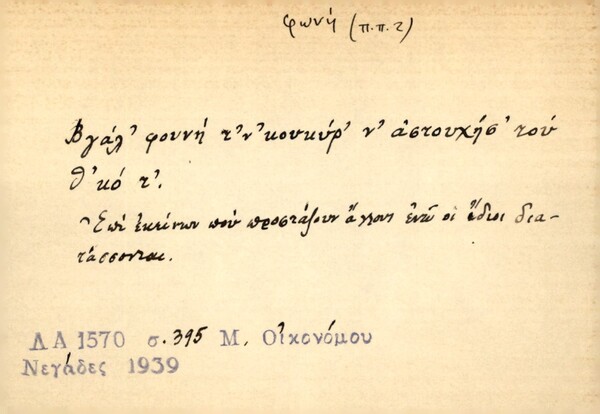 φωνή (π.π. 2)
Βγάλ' φουνή τ'ν' κουκύρ' ν' ἀστουχήσ' τού
θ'κό τ'.
Ἐπί ἐκείνων πού προστάζουν ἄλλους ἐνῶ οἱ ἴδιοι δια-
τάσσονται.
ΛΑ 1570 σ. 395 Μ. Οἰκονόμου
Νεγάδες 1939